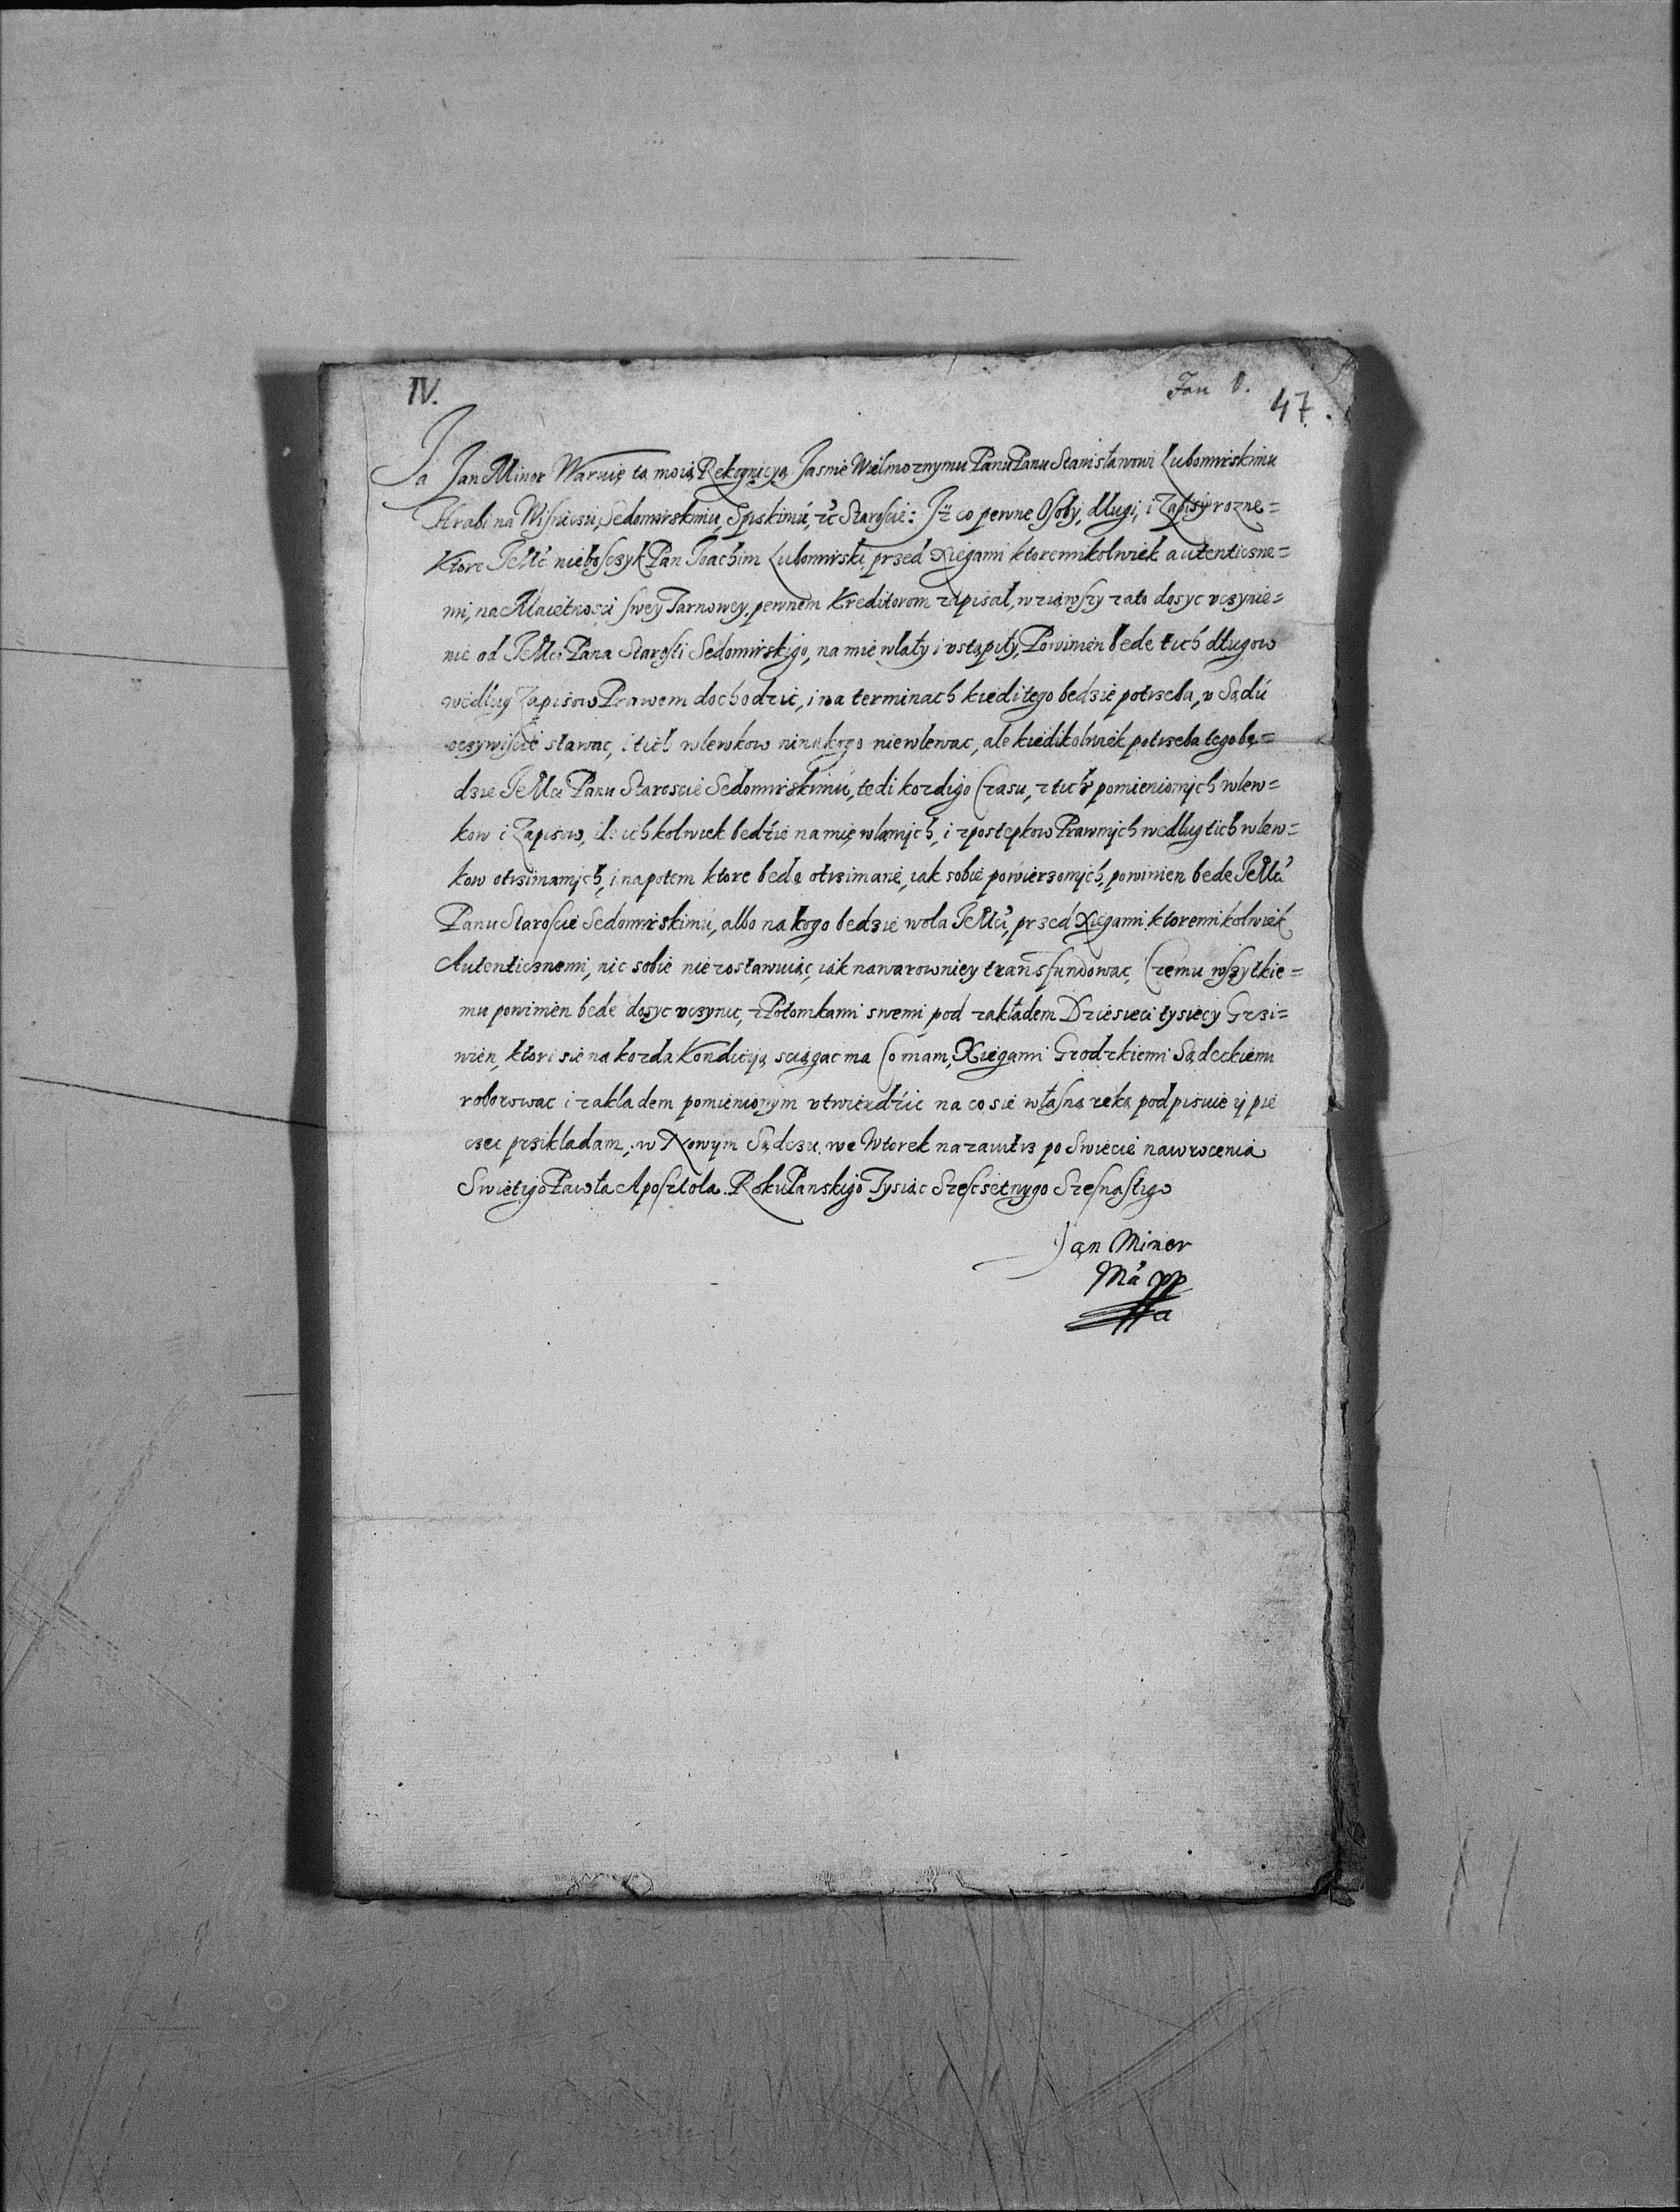 IV.
Jan V.
47.
Ja Jan Minor Waruię tą moią Rekognicyą Jasnie Wielmoznymu Panu Panu Stanisławowi Lubomirskimu
Hrabi na Wisniczu, Sędomirskimu, Spiskimú, &c Staroscie: Jż co pewne Osoby, długi, i Zapisy rozne=
Ktore JeMć nieboſczyk Pan Joachim Lubomirski przed Xięgami ktoremikolwiek autenticzne=
mi, na Maiętnosci swey Tarnowey, pewnem Kreditorom zapisał, wziąwszy zato dosyc vczynie=
nie od JeMci Pana Starosti Sędomirskigo, na mie wlały i vstąpiły, Powinien bede tich długow
według Zapisow Prawem dochodzic, i na terminach kiedi tego bedzie potrzeba, v Sądú
oczywiscie stawac, i tich wlewkow ninakogo niewlewac, ale kiedikolwiek potrzeba tego bę=
dzie JeMci Panu Staroscie Sędomirskimú, tedi kozdigo Czasu, z tich pomienionych wlew=
kow i Zapisow, ile ich kolwiek bedzie na mię wlanych, i z postepkow Prawnych wedlug tich wlew=
kow otrzimanych, i napotem ktore bedą otrzimane, iak sobie powierzonych, powinien bede JeMci
Panu Staroscie Sędomirskimú, albo na kogo bedzie wola JeMci, przed Xięgami ktoremikolwiek
Autenticznemi, nic sobie niezostawuiąc, iak nawarowniey transfundowac, Czemu wszytkie=
mu powinien bede dosyc vczynic, z Potomkami swemi pod zakładem Dziesieci tysięcy Grzi=
wien, ktori się na kozdą Kondicyią sciągac ma Co mam, Xięgami Grodzkiemi Sądeckiemi
roborowac i zakladem pomienionym vtwierdzic na co się własną ręką podpisuie ij pie
czec przikladam, w Nowym Sądczu, we Wtorek nazaiutrz po Swięcie nawrocenia
Swiętigo Pawła Aposztola. Roku Panskigo Tysiąc Szescsetnygo Szesnastigo
Jan Minor
Mą pp